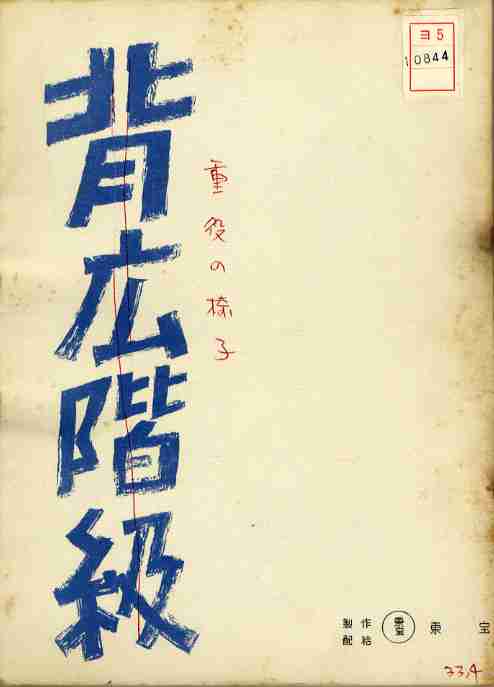 ヨ5
10844
背広階級
重役の椅子
製作
配給
東宝
東宝
33,4